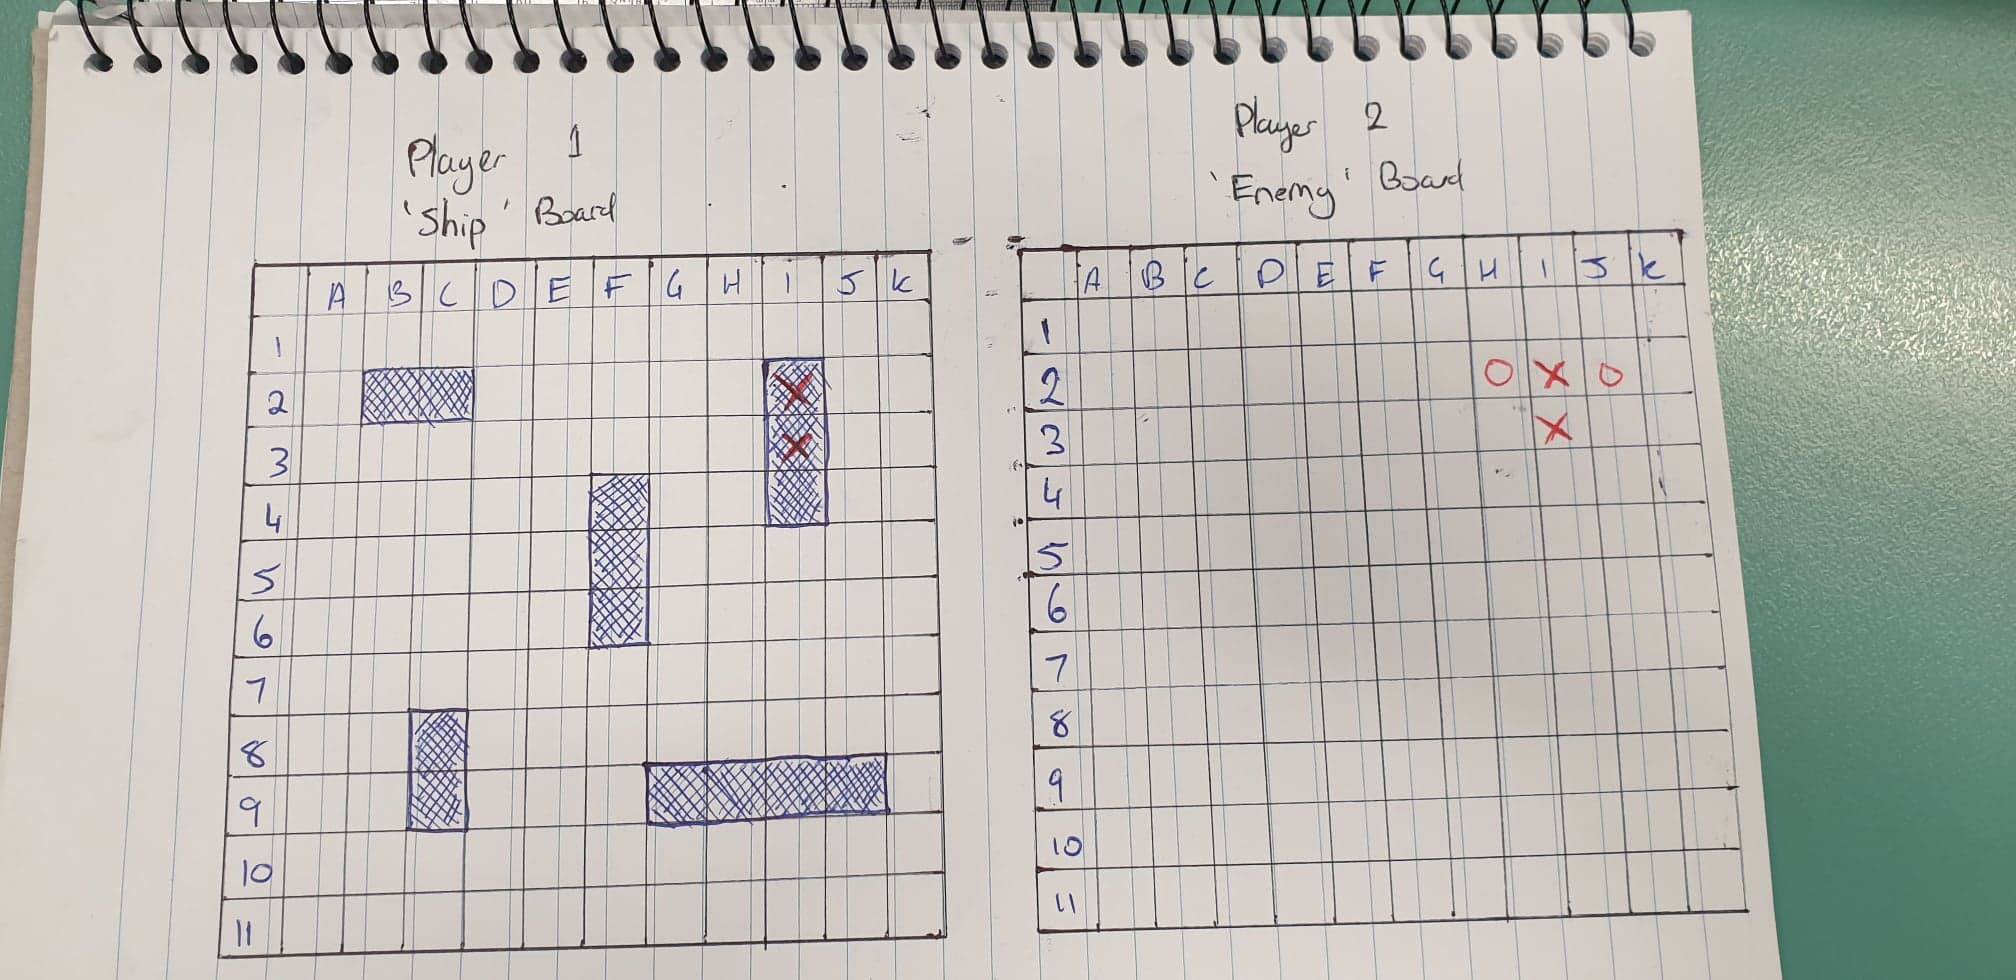 Player 1
'Ship' Board
A B C D E F G H I J K
1
2 X
3 X
4
5
6
7
8
9
10
11
Player 2
'Enemy' Board
A B C D E F G H I J K
1
2 O X O
3 X
4
5
6
7
8
9
10
11